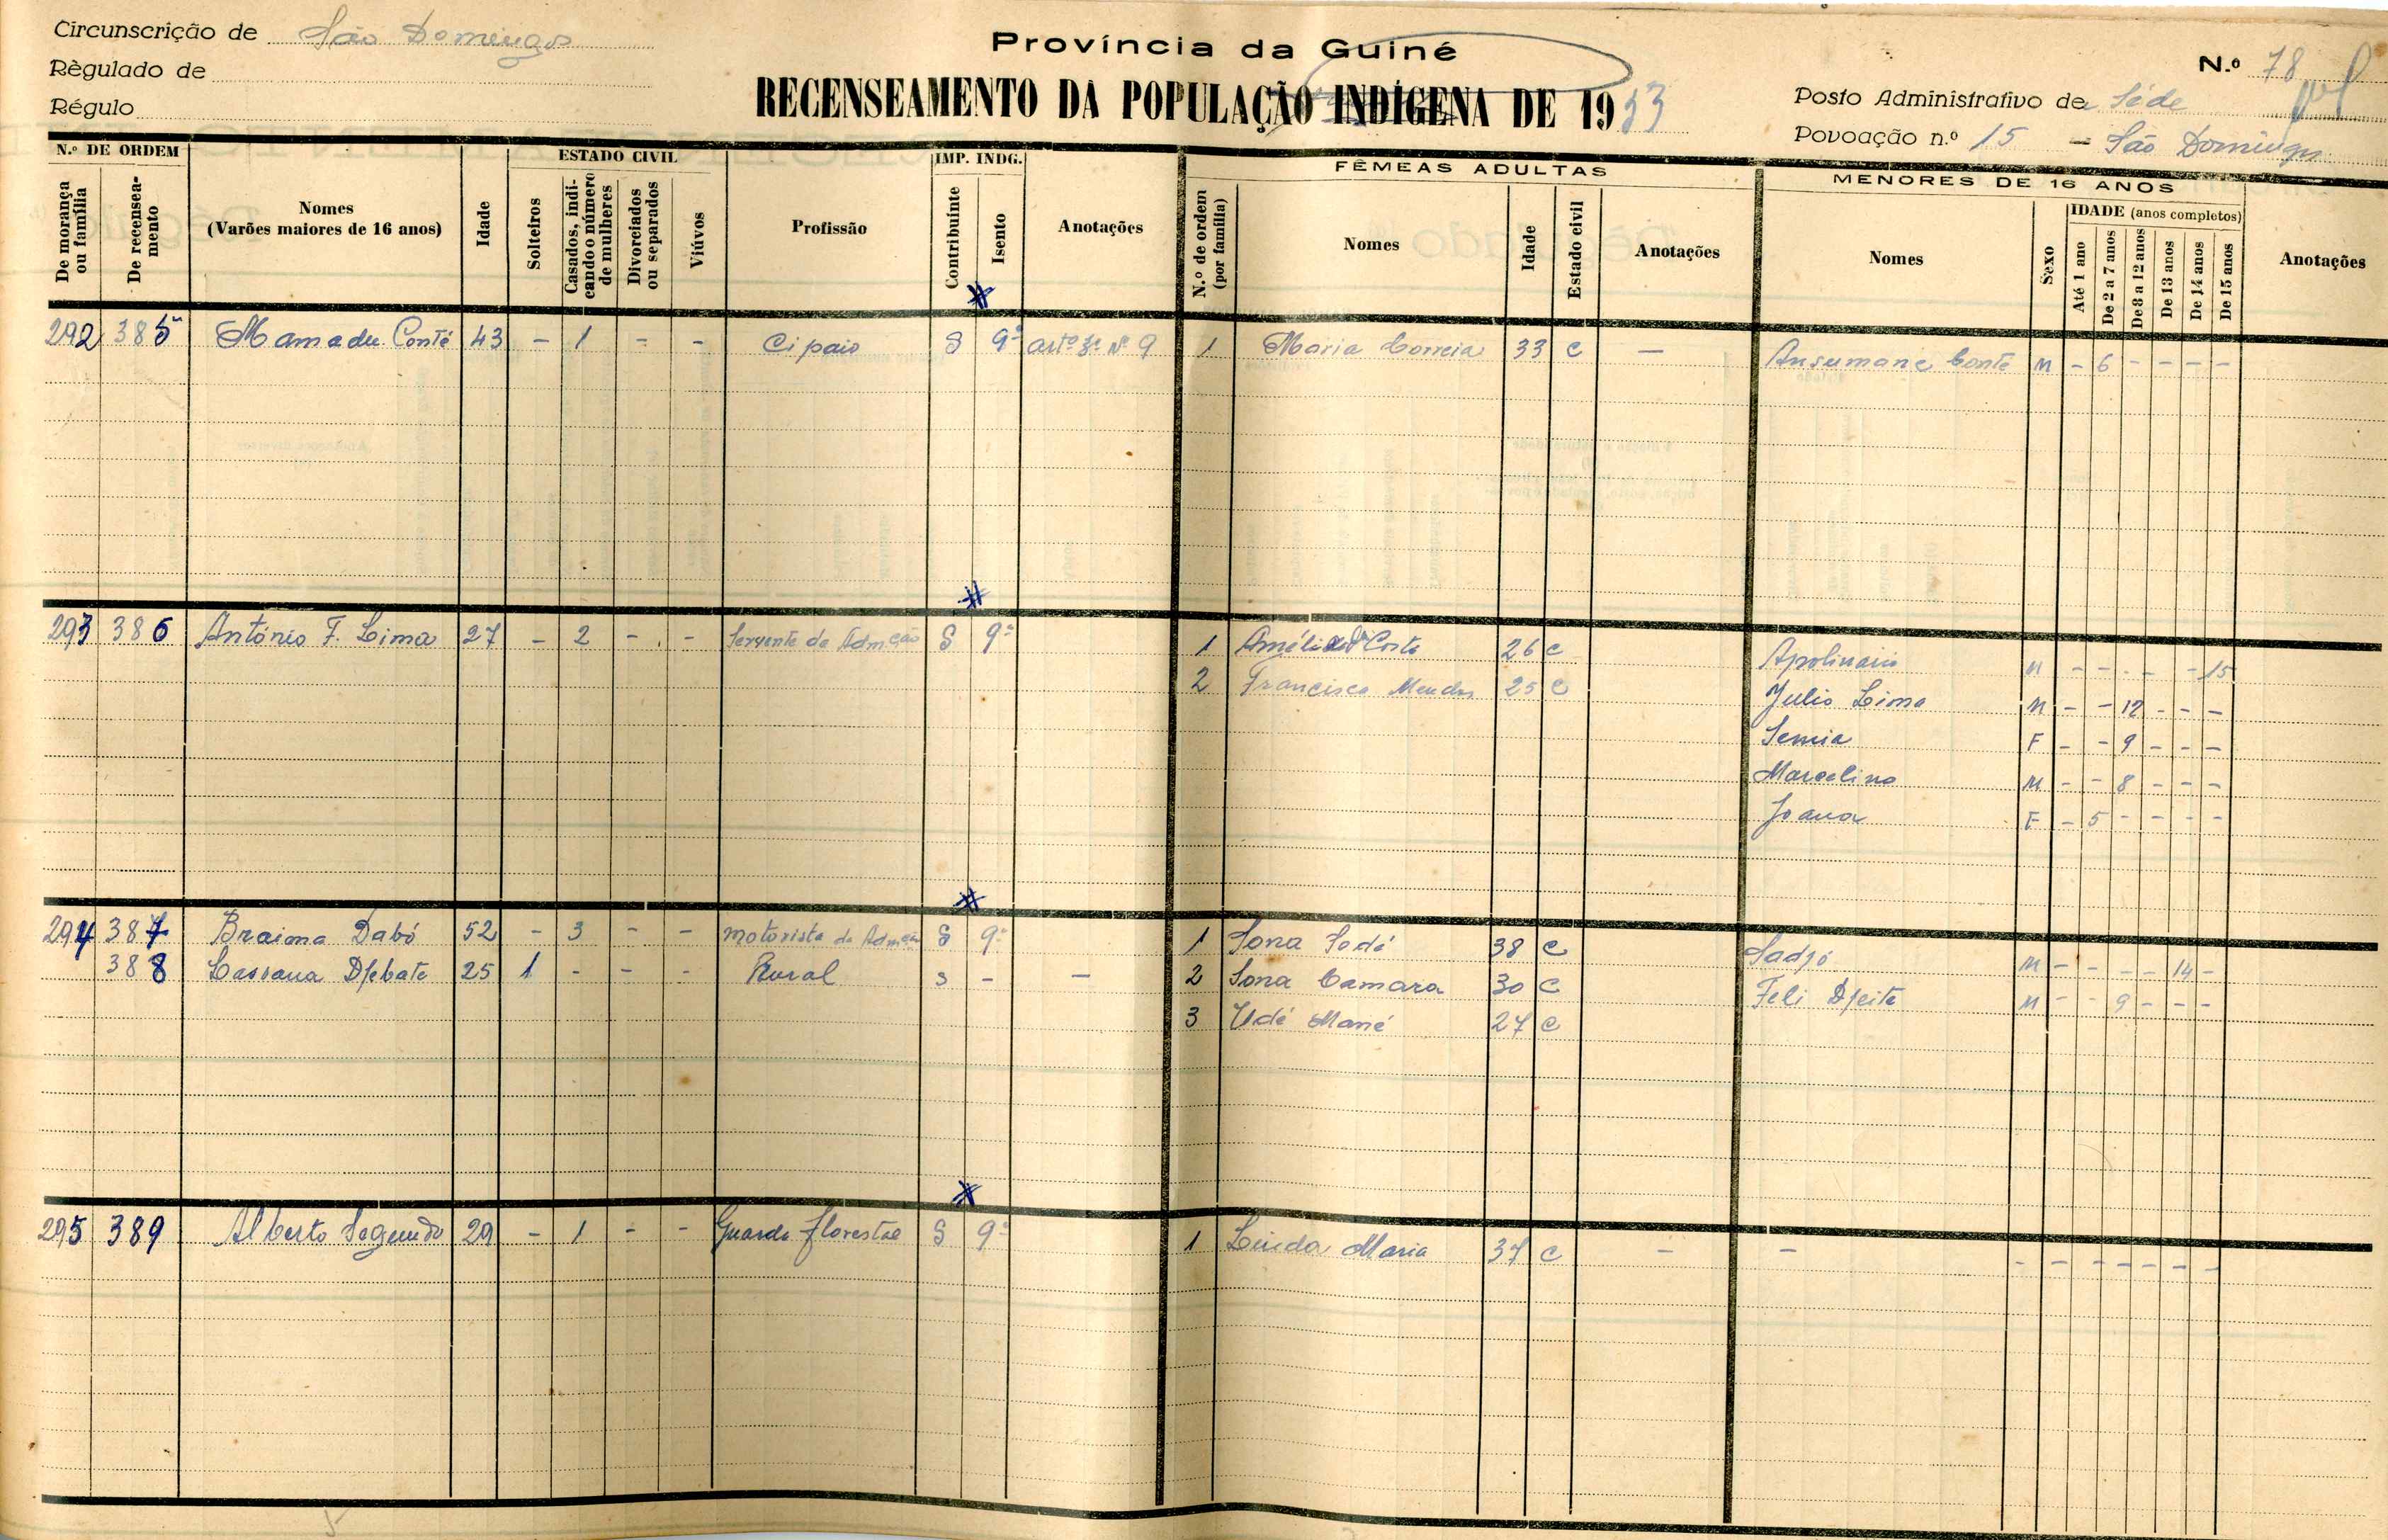 Circunscrição de São Domingos
Règulado de
Régulo
Província da Guiné
RECENSEAMENTO DA POPULAÇÃO INDÍGENA DE 1953
N.º 78
Posto Administrativo de Séde
Povoação n.º 15 – São Domingos
N.º DE ORDEM
De morança ou família
De recenseamento
Nomes
(Varões maiores de 16 anos)
Idade
ESTADO CIVIL
Solteiros
Casados, indicando o número de mulheres
Divorciados ou separados
Viúvos
Profissão
IMP. INDG.
Contribuinte
Isento
Anotações
FÊMEAS ADULTAS
N.º de ordem (por família)
Nomes
Idade
Estado civil
Anotações
MENORES DE 16 ANOS
Nomes
Sexo
IDADE (anos completos)
Até 1 ano
De 2 a 7 anos
De 8 a 12 anos
De 13 anos
De 14 anos
De 15 anos
Anotações
292 385 Mamadu Conté 43 – 1 – – Cipaio S 9º artº 3º Nº 9 1 Maria Correia 33 C — Ansumane Conté M – 6 – – – –
293 386 António F. Lima 27 – 2 – – Servente da Admção S 9º 1 Amélia da Costa 26 C Apolinário M – – – – – 15
2 Francisca Mendes 25 C Julio Lima M – – 12 – – –
Semia F – – 9 – – –
Marcelino M – – 8 – – –
Joana F – 5 – – – –
294 387 Braima Dabó 52 – 3 – – motorista da Admção S 9º 1 Sona Sodé 38 C Sadjó M – – – – 14 –
388 Lassana Djebate 25 1 – – – Rural S – — 2 Sona Camara 30 C Feli Djeité M – – 9 – – –
3 Udé Mané 27 C
295 389 Alberto Segundo 29 – 1 – – Guarda florestal S 9º 1 Luida Maria 37 C – – – – – – – – –